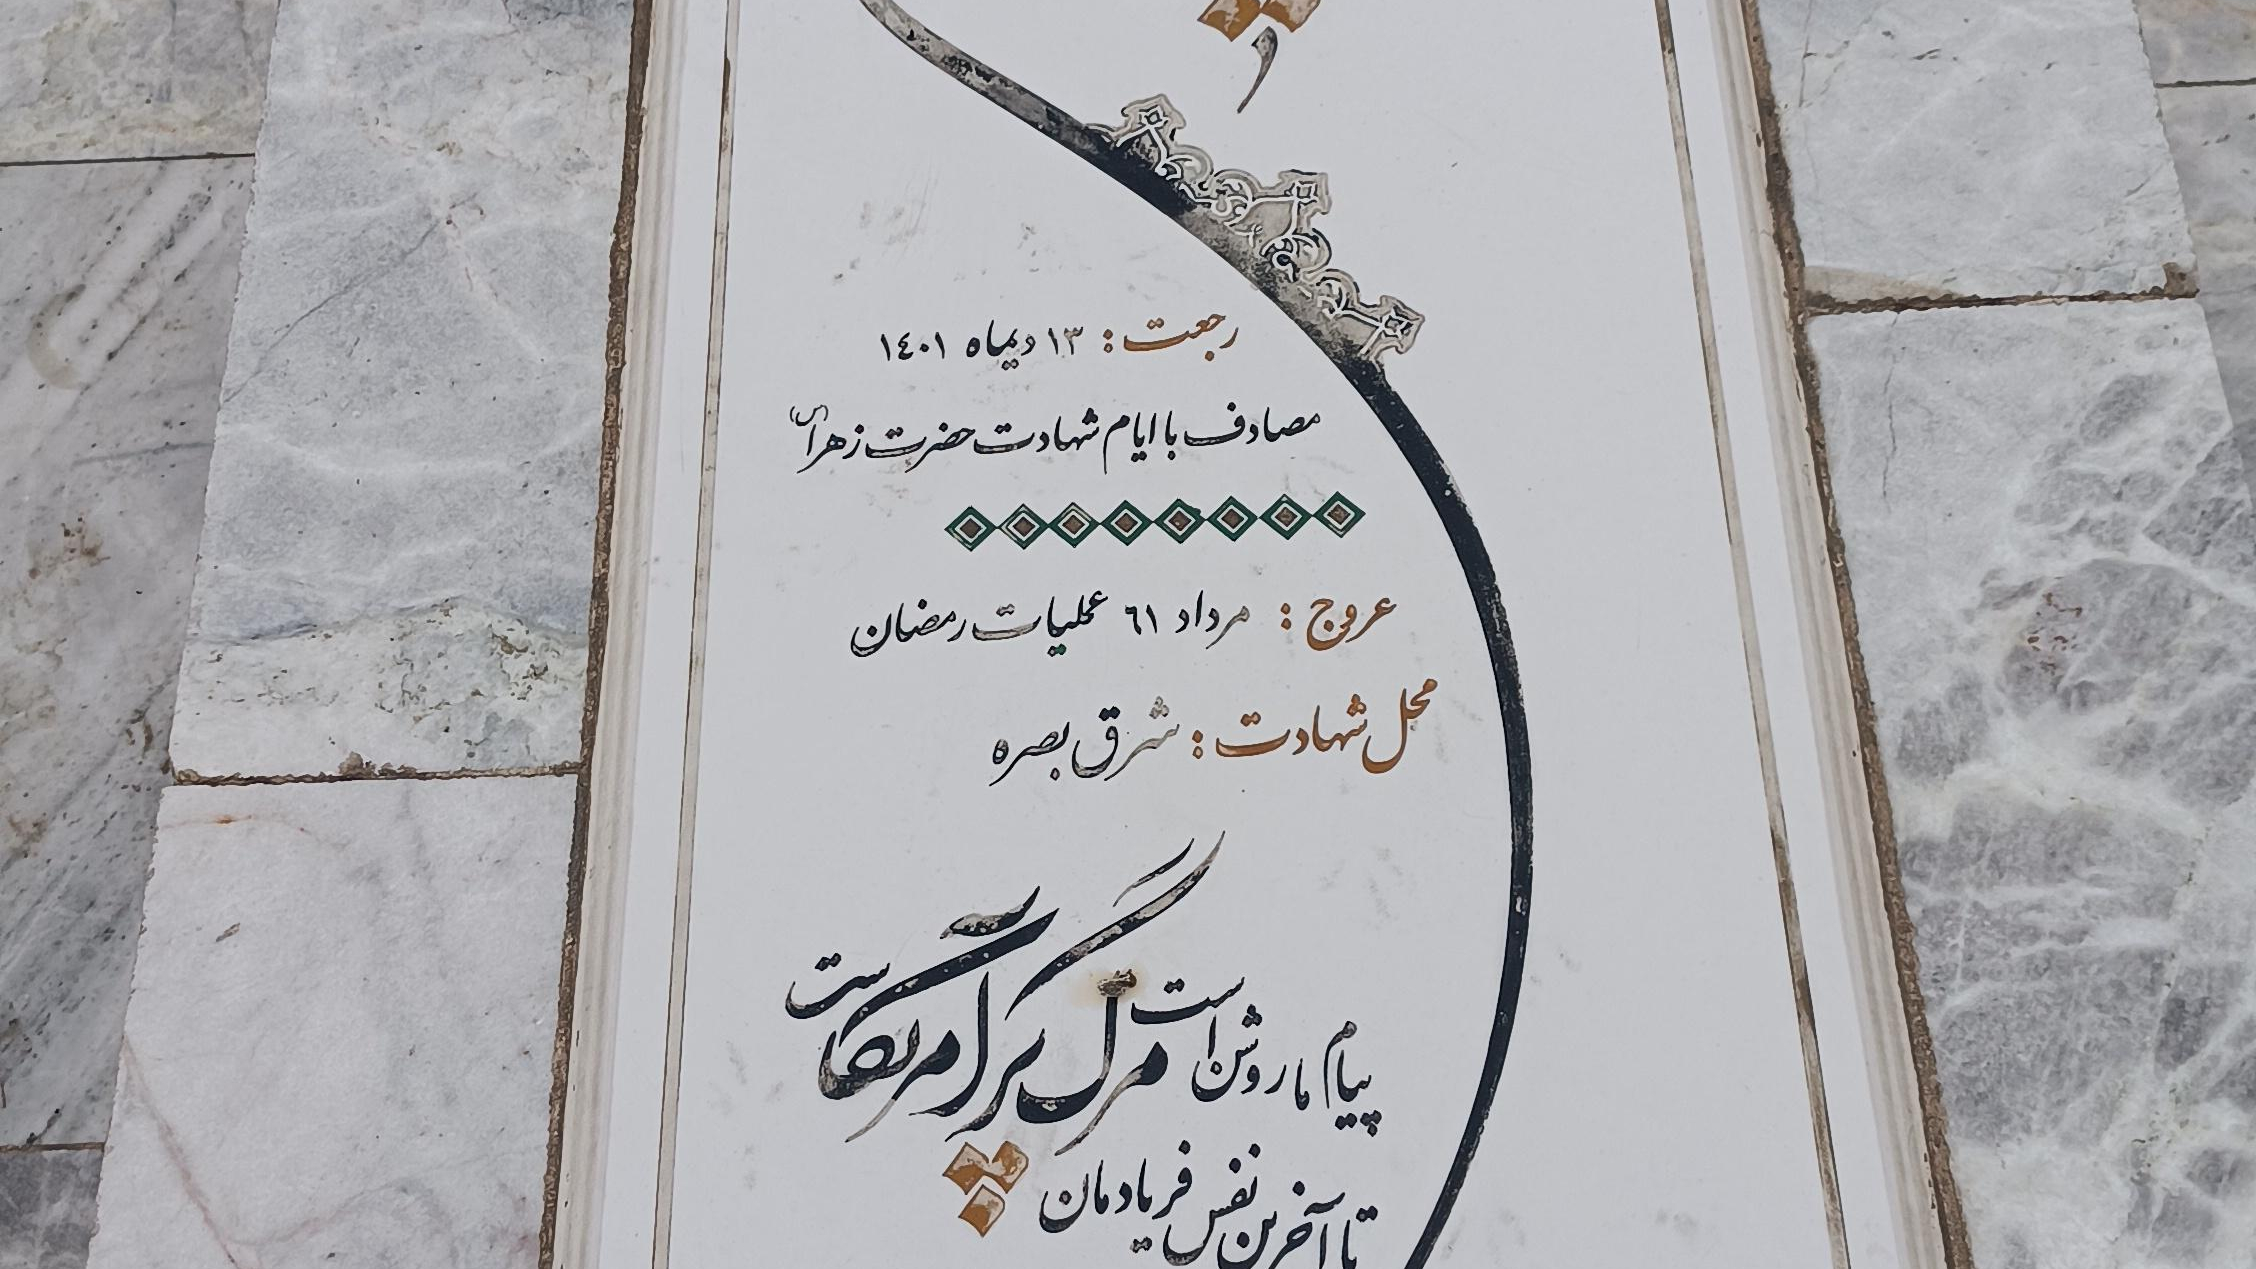 رجعت: ۱۳ دیماه ۱٤۰۱
مصادف با ایام شهادت حضرت زهرا (س)
عروج: مرداد ٦۱ عملیات رمضان
محل شهادت: شرق بصره
پیام ما روشن است مرگ بر آمریکاست
تا آخرین نفس فریادمان